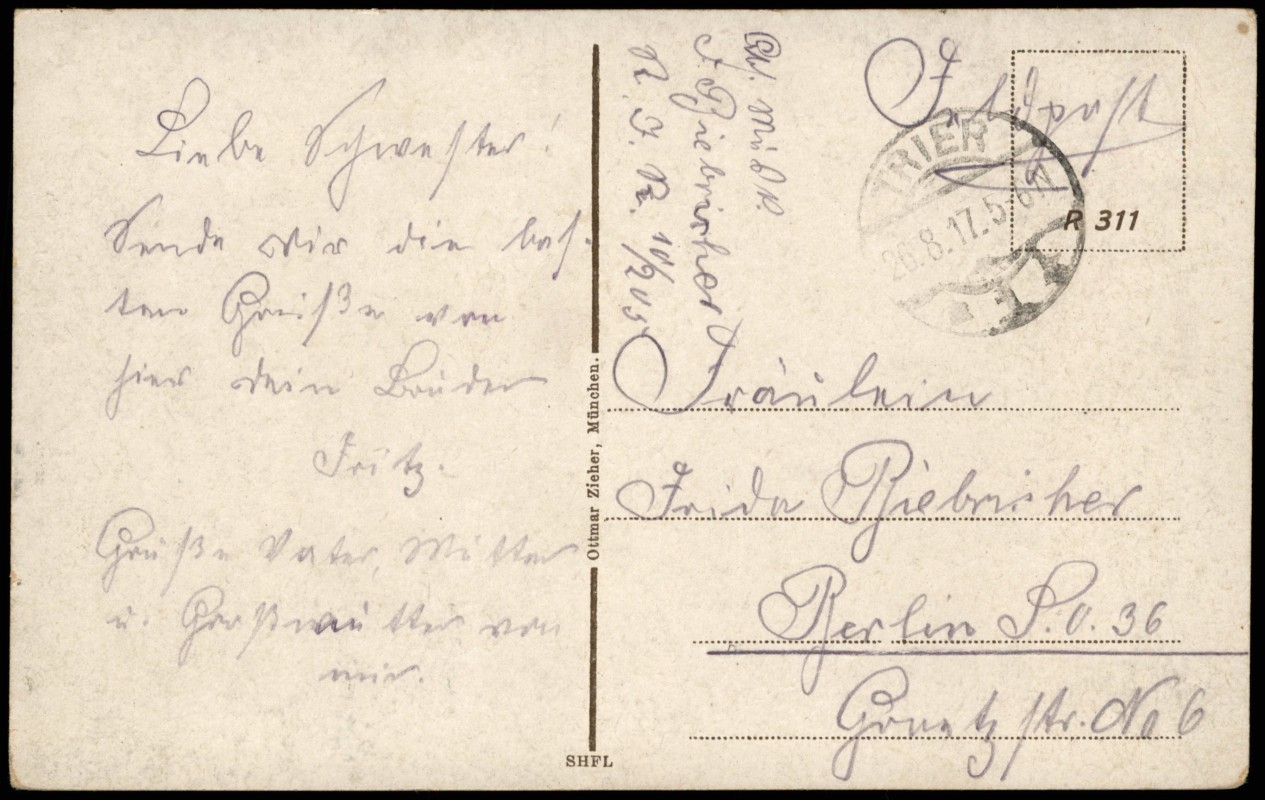 Liebe Schwester!
Sende dir die bes-
ten Grüße von
hier dein Bruder
Fritz.
Grüße Vater, Mutter
u. Großmutter von
mir.
Ottmar Zieher, München.
SHFL
F. Biebricher
R. I. R.
Feldpost
TRIER
26.8.17.5-6N
R 311
Fräulein
Frida Biebricher
Berlin S.O. 36
str. No 6